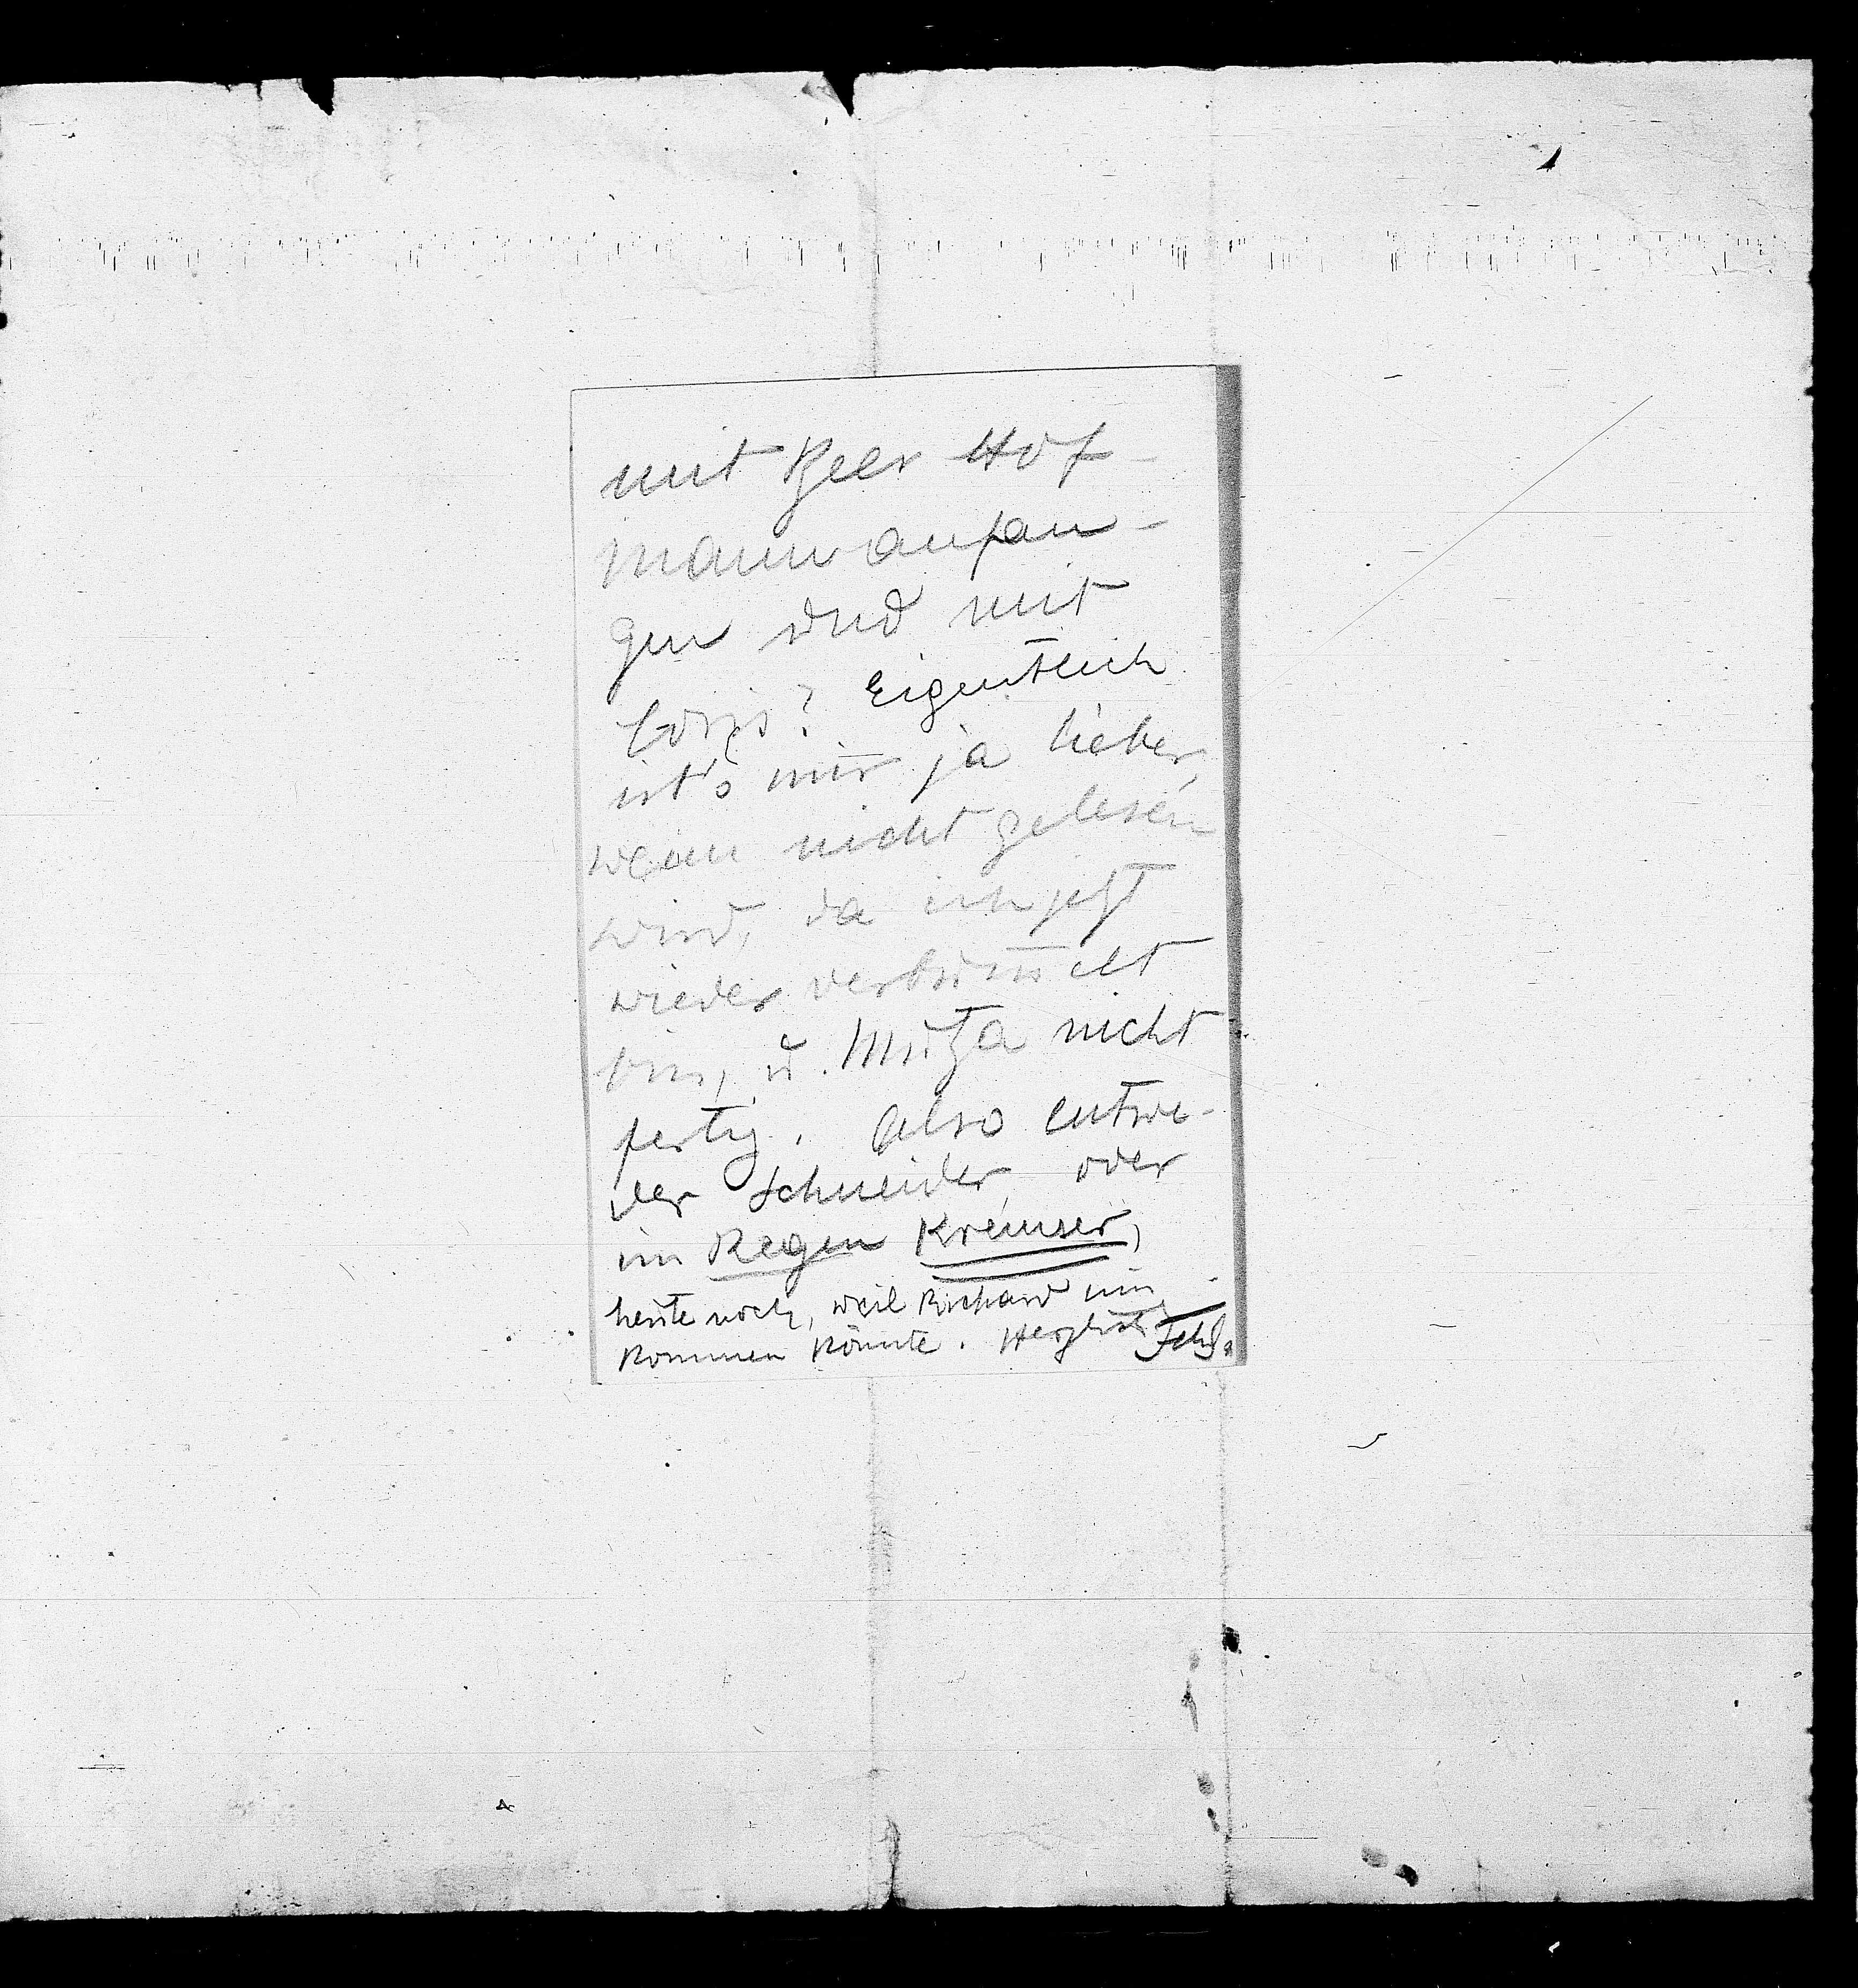 mit Beer Hof-
mann anfan-
gen und mit
Loris? Eigentlich
ist's mir ja lieber,
wenn nicht gelesen
wird, da ich jetzt
wieder verbum̅elt
bin, u. Mitza nicht
fertig. Also entwe-
der Schneider, oder
im Regen Kremser,
heute noch, weil Richard nur
kommen könnte. Herzlich